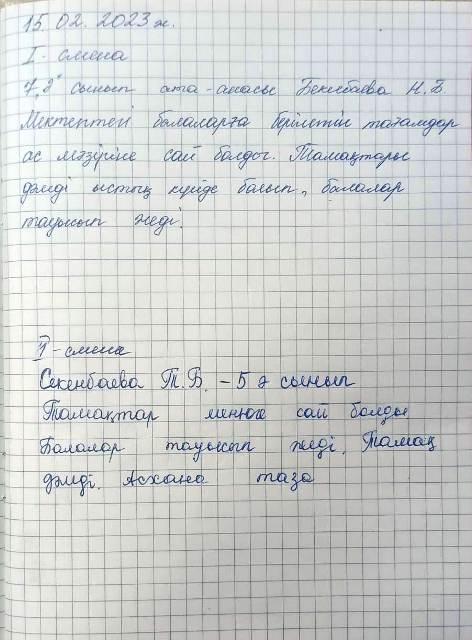 15.02.2023ж.
I - смена
7 "ә" сынып ата-анасы Бекенбаева Н.Б.
Мектептегі балаларға берілетін тағамдар
ас мәзіріне сай болды. Тамақтары
дәмді ыстық күйде болып, балалар
тауысып жеді.
II - смена
Секенбаева Т.Б. - 5 ә сынып
Тамақтар менюге сай болды
Балалар тауысып жеді. Тамақ
дәмді. Асхана таза